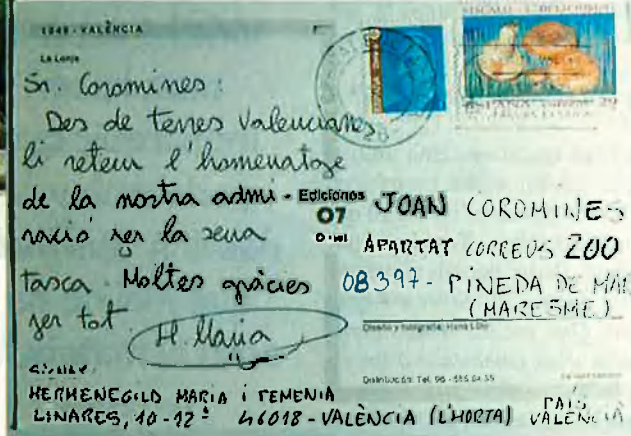 1049 - VALÈNCIA
La Lonja
Sr. Coromines:
Des de terres valencianes
li retem l'homenatge
de la nostra admi-
ració per la seua
tasca. Moltes gràcies
per tot.
H. Maria
Ediciones
07
JOAN COROMINES
APARTAT CORREUS 200
08397 - PINEDA DE MAR
(MARESME)
Diseño y fotografía: Hans Löhr
Distribución: Tel. 96 -
HERMENEGILD MARIA i TEMENIA
LINARES, 10-12ª 46018 - VALÈNCIA (L'HORTA) PAÍS
VALENCIÀ